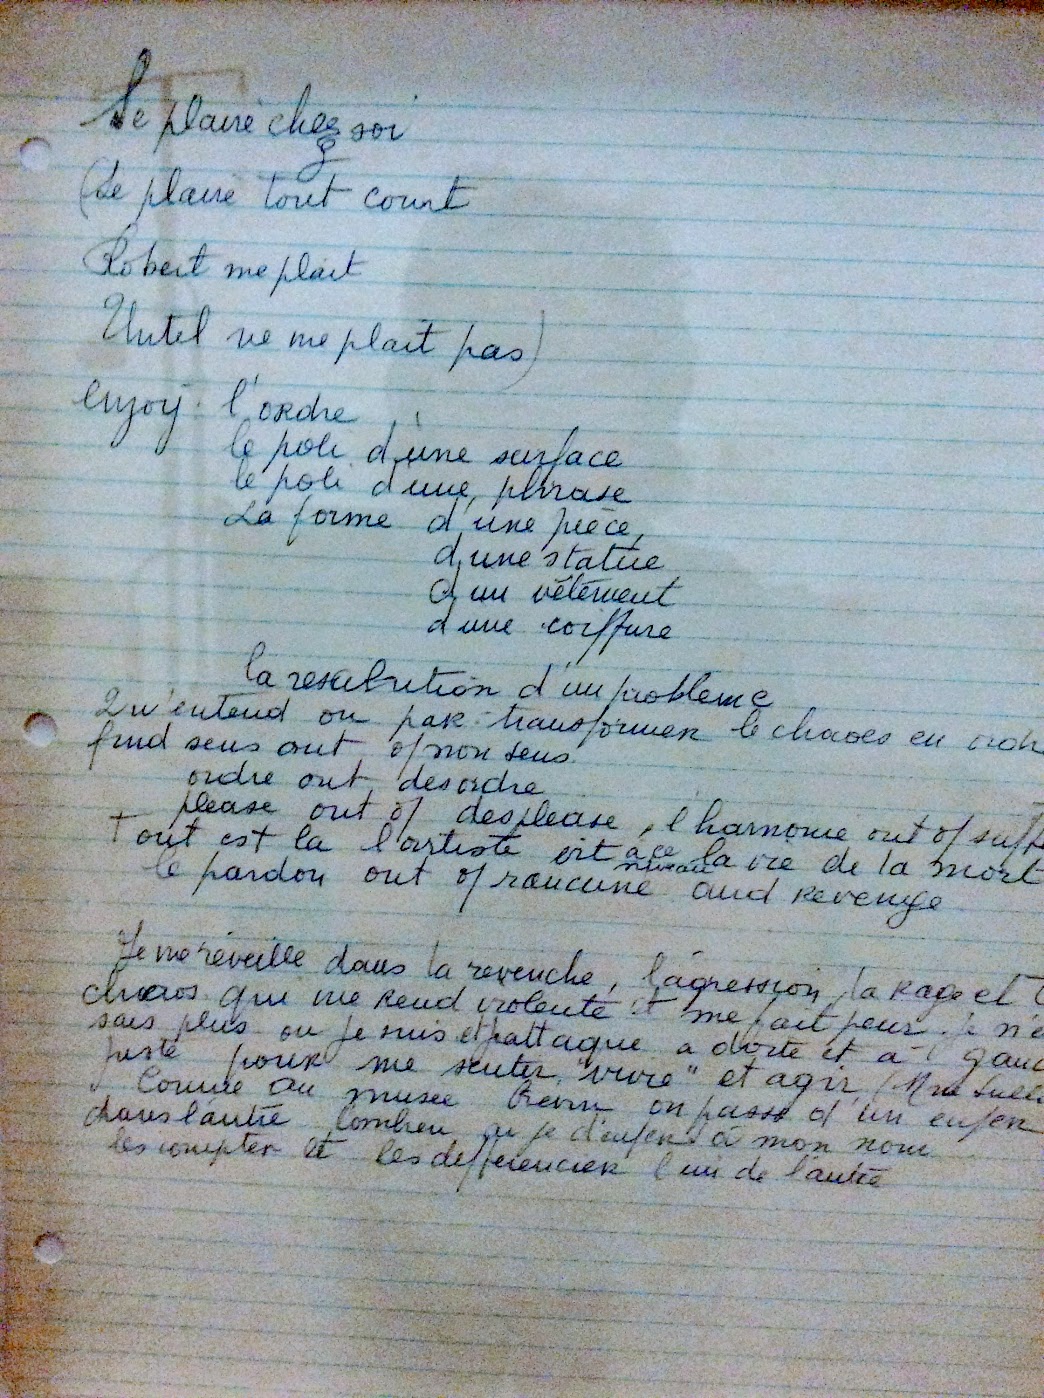 Se plaire chez soi
(Se plaire tout court
Robert me plait
Untel ne me plait pas)
enjoy. l'ordre
le poli d'une surface
le poli d'une phrase
La forme d'une pièce,
d'une statue
d'un vêtement
d'une coiffure
la d'un probleme
Qu'entend on par transformer le chaoes en
find sens out of non sens
ordre out desordre
please out of desplease, l'harmonie out of
Tout est la l'artiste la vie de la mort
le pardon out of rancune and revenge
Je me réveille dans la revenche, l'agression, la rage et
chaos qui me rend violente et me fait peur. Je
sais plus ou je suis et j'attaque a et a
juste pour me sentir "vivre" et agir,
Comme au musée on passe d'un enfer
dans l'autre combien ai je d'enfers à mon nom
les compter et les differencier l'un de l'autre